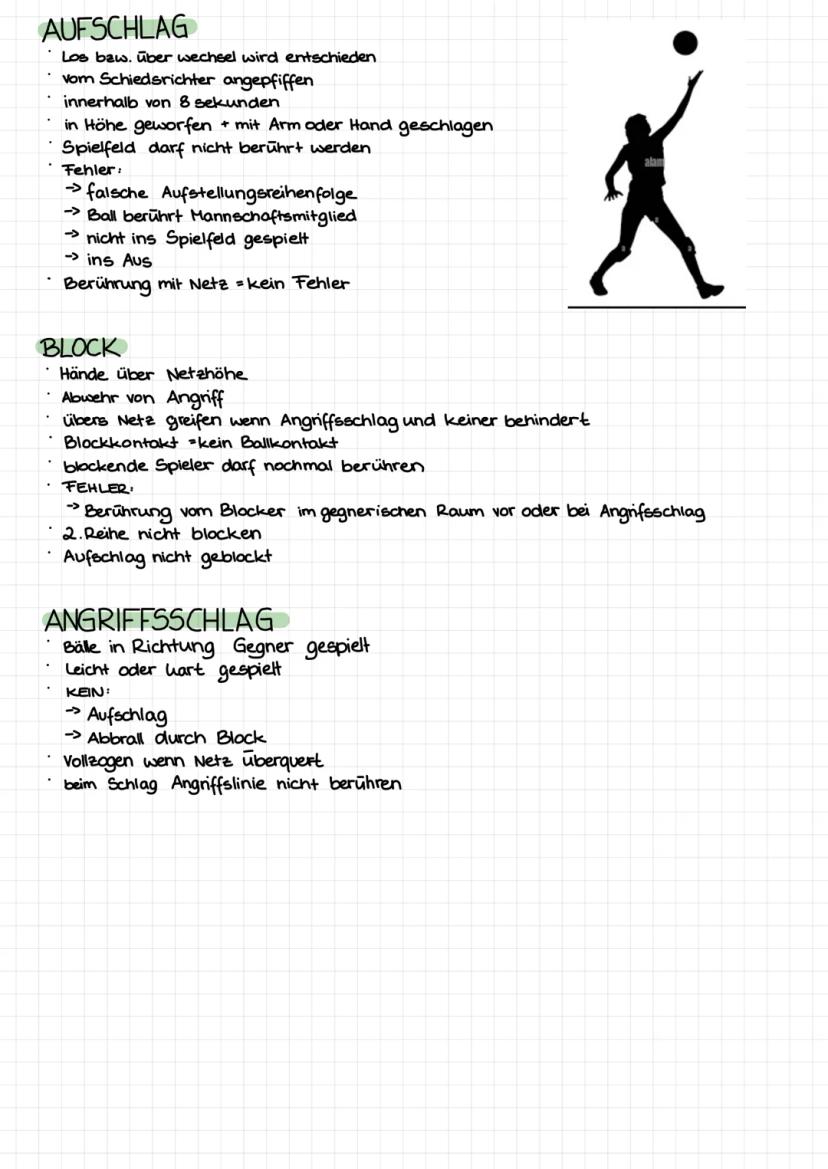 AUFSCHLAG
· Los bzw. über wechsel wird entschieden
· vom Schiedsrichter angepfiffen
· innerhalb von 8 sekunden
· in Höhe geworfen + mit Arm oder Hand geschlagen
· Spielfeld darf nicht berührt werden
· Fehler:
-> falsche Aufstellungsreihenfolge
-> Ball berührt Mannschaftsmitglied
-> nicht ins Spielfeld gespielt
-> ins Aus
· Berührung mit Netz = kein Fehler
alam
BLOCK
· Hände über Netzhöhe
· Abwehr von Angriff
· übers Netz greifen wenn Angriffsschlag und keiner behindert
· Blockkontakt = kein Ballkontakt
· blockende Spieler darf nochmal berühren
· FEHLER:
-> Berührung vom Blocker im gegnerischen Raum vor oder bei Angrifsschlag
· 2. Reihe nicht blocken
· Aufschlag nicht geblockt
ANGRIFFSSCHLAG
· Bälle in Richtung Gegner gespielt
· Leicht oder hart gespielt
· KEIN:
-> Aufschlag
-> Abbrall durch Block
· Vollzogen wenn Netz überquert
· beim Schlag Angriffslinie nicht berühren